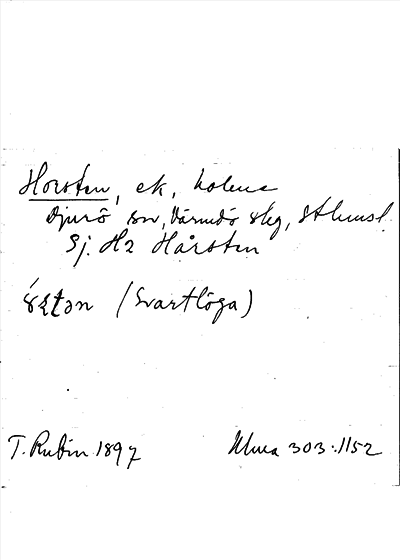 Horsten, ek, holme
Djurö sn, Värmdö skg, Sthmsl.
Sj. H2 Hårsten
(Svartlöga)
T. Rubin 1897
Ulma 303:1152